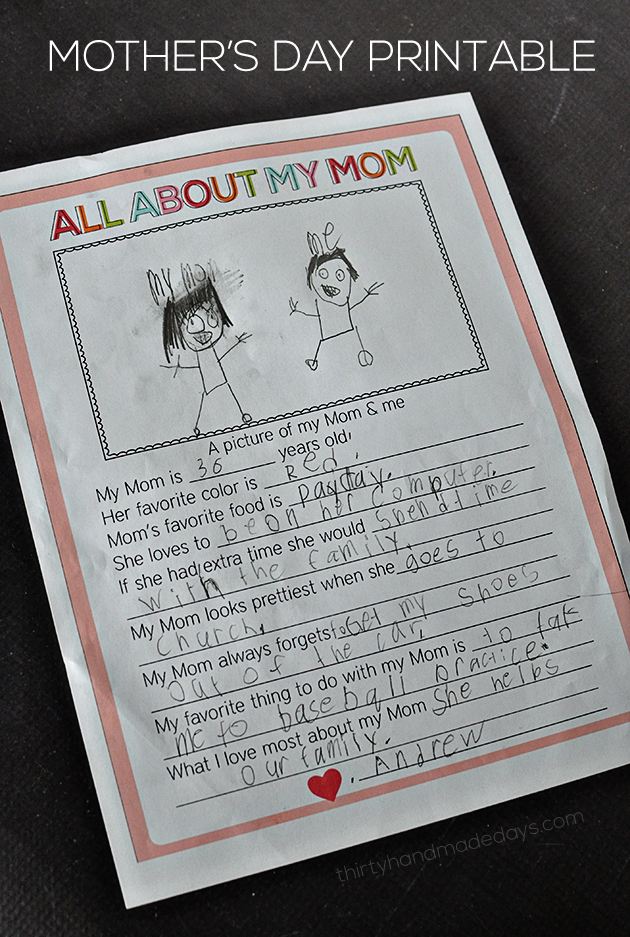 MOTHER'S DAY PRINTABLE
ALL ABOUT MY MOM
my mom
me
A picture of my Mom & me
My Mom is 36 years old,
Her favorite color is Red.
Mom's favorite food is payday.
She loves to be on her computer.
If she had extra time she would spend time
with the family.
My Mom looks prettiest when she goes to
church.
My Mom always forgets to get my shoes
out of the car.
My favorite thing to do with my Mom is to tak
me to baseball practice.
What I love most about my Mom she helbs
our family.
, Andrew
thirtyhandmadedays.com